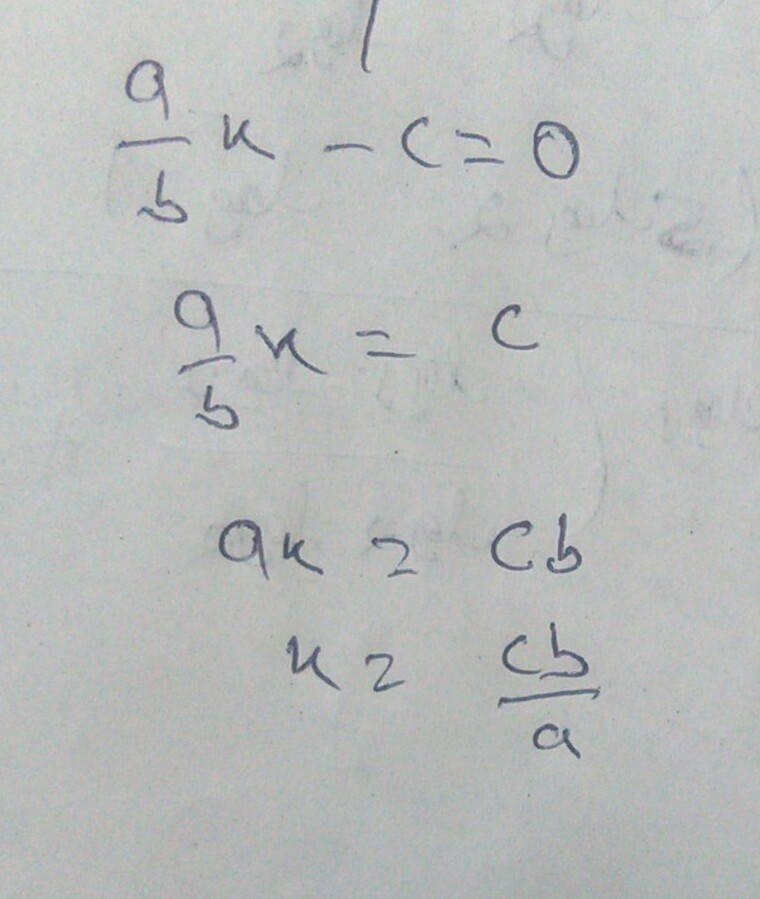 a/b x - c = 0
a/b x = c
ax = cb
x = cb/a